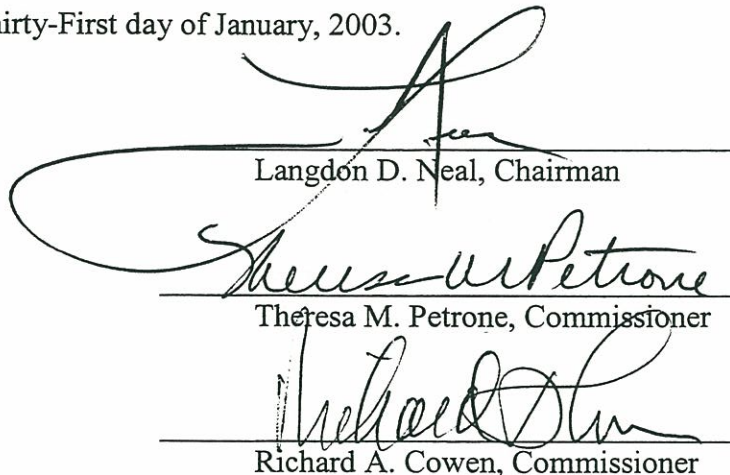 hirty-First day of January, 2003.
Langdon D. Neal, Chairman
Theresa M Petrone
Theresa M. Petrone, Commissioner
Richard A. Cowen, Commissioner